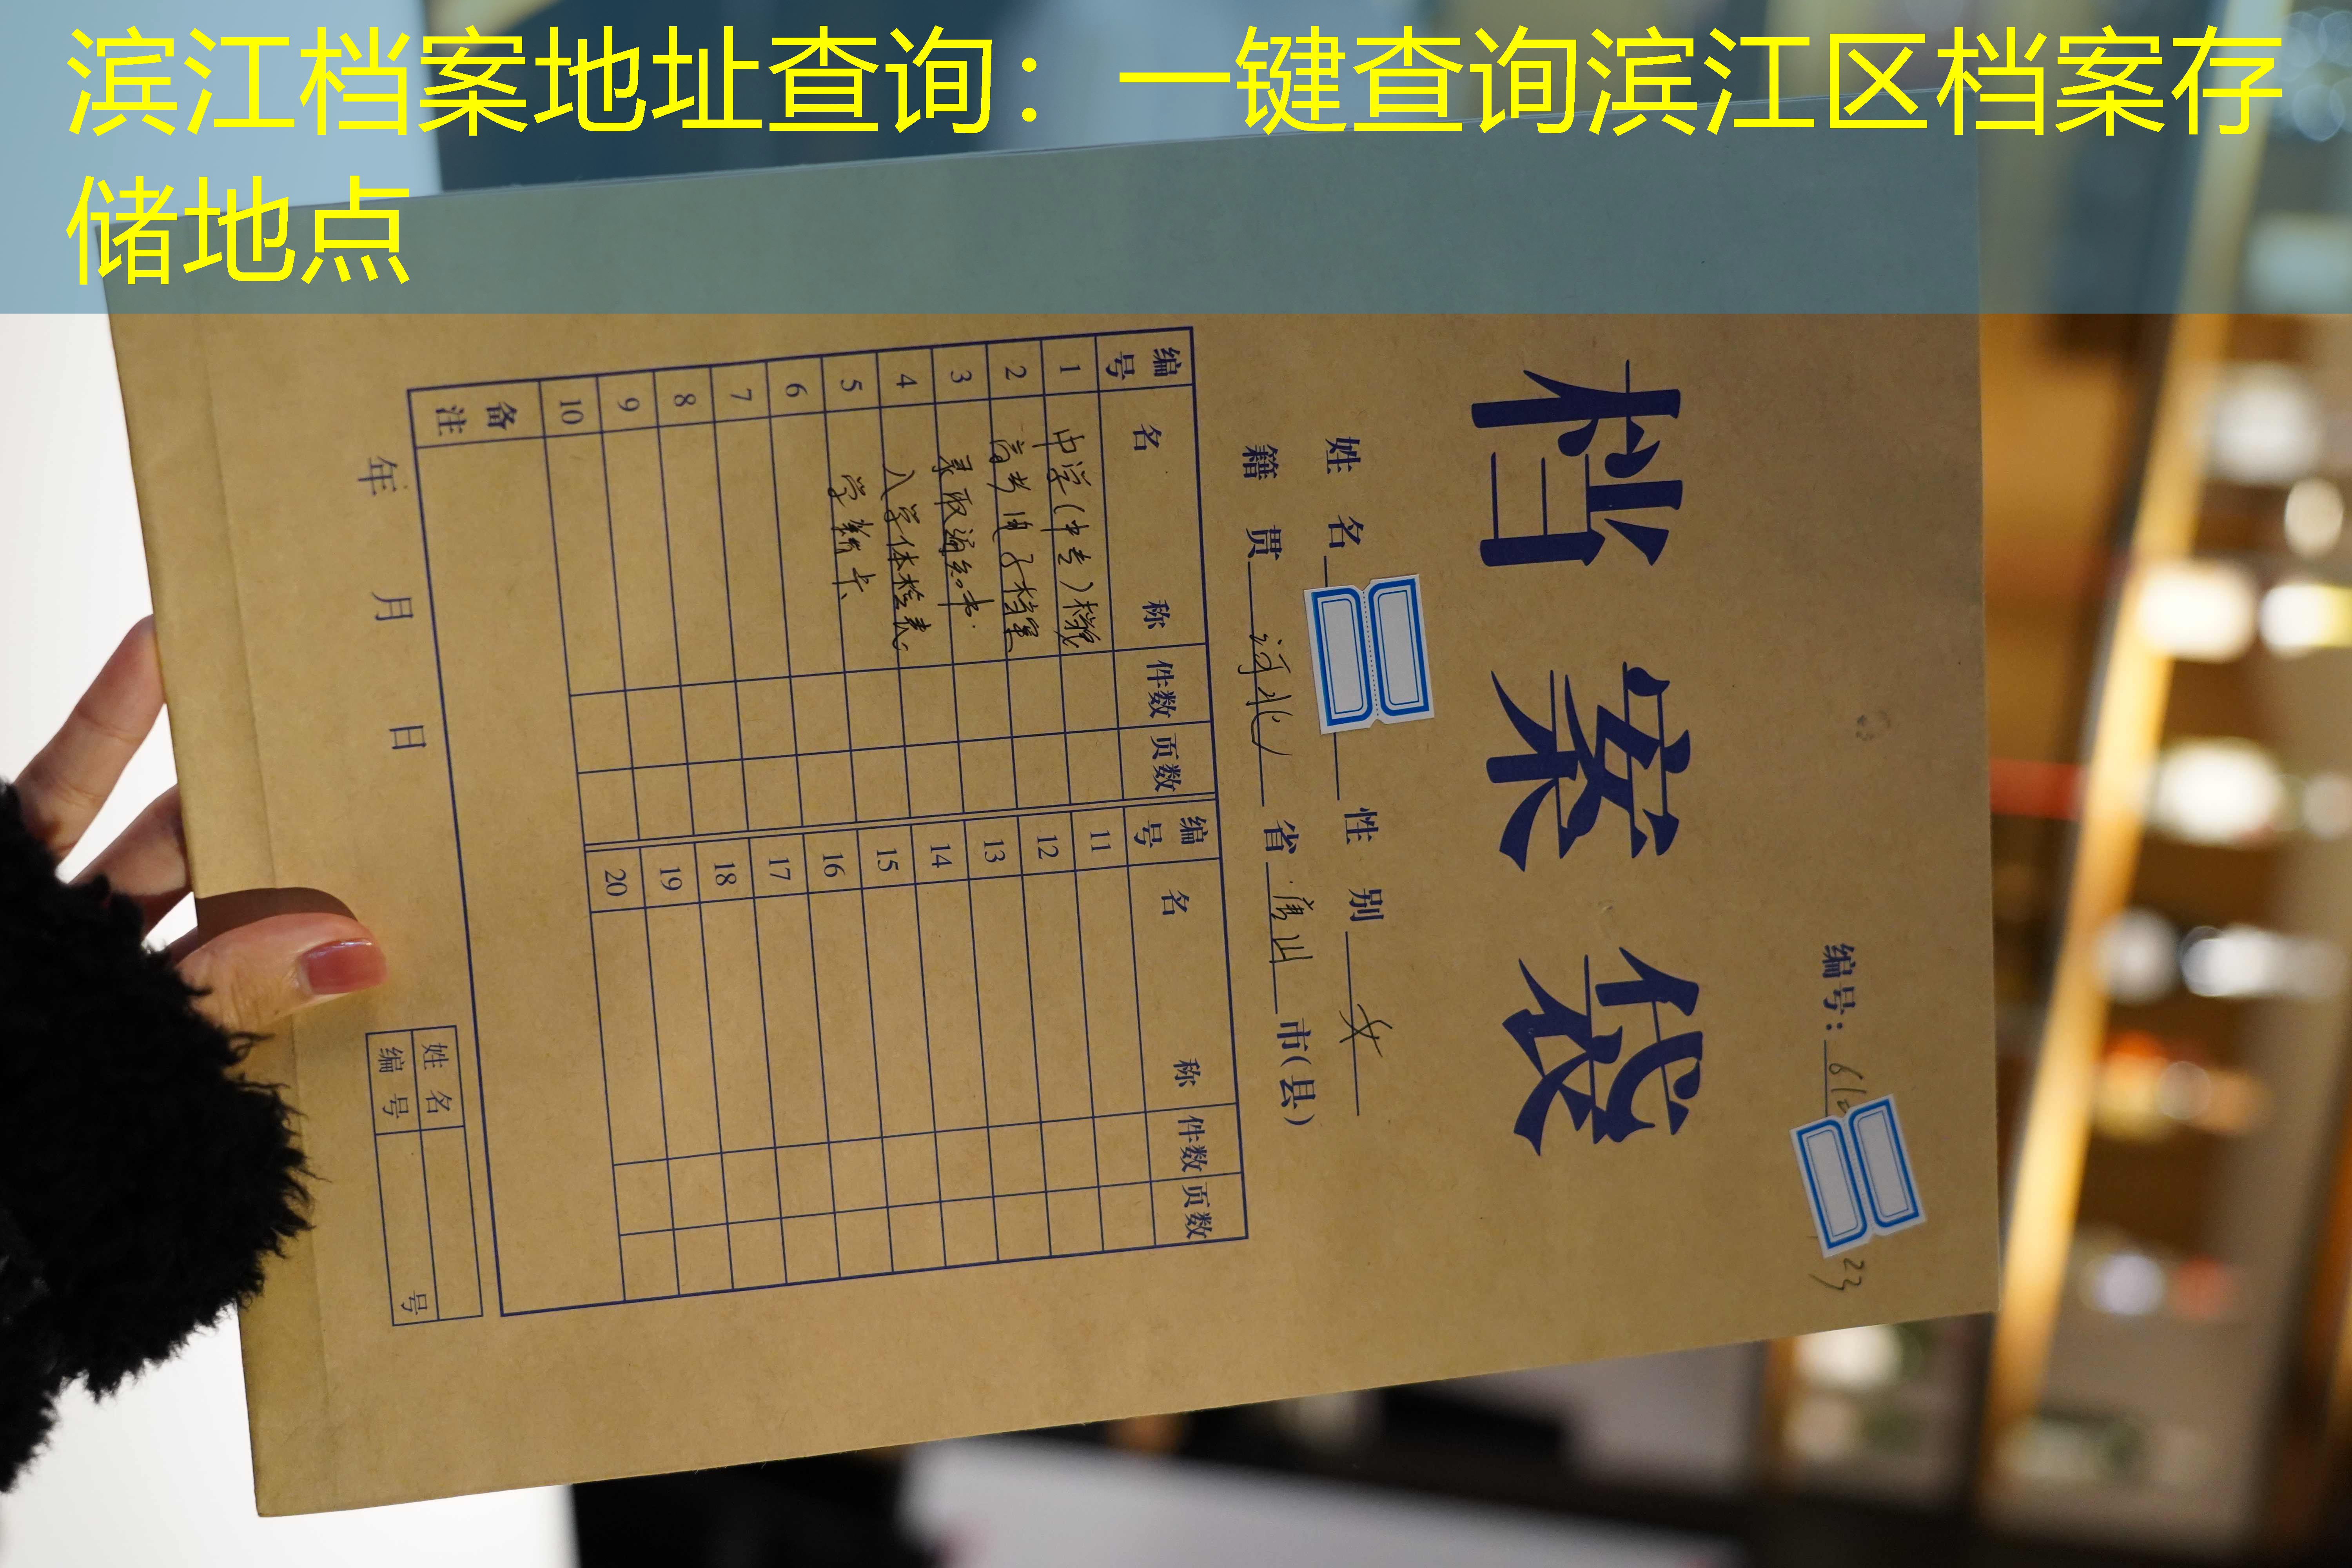 滨江档案地址查询：一键查询滨江区档案存
储地点
编号：
档案袋
姓名 性别 女
籍贯 河北 省 唐山 市(县)
编号 名称 件数 页数 编号 名称 件数 页数
1 中学(中专)档案 11
2 高考电子档案 12
3 录取通知书 13
4 入学体检表 14
5 学籍卡 15
6 16
7 17
8 18
9 19
10 20
备注
年 月 日
姓名
编号 号